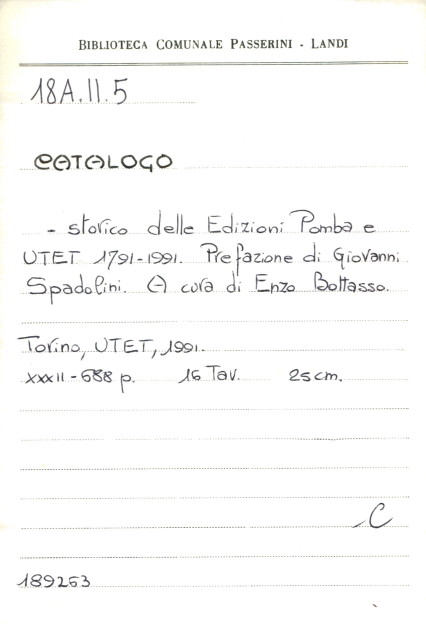 BIBLIOTECA COMUNALE PASSERINI - LANDI
18A.II.5
CATALOGO
- storico delle Edizioni Pomba e
UTET 1791-1991. Prefazione di Giovanni
Spadolini. A cura di Enzo Bottasso.
Torino, UTET, 1991.
XXXII-688 p. 16 Tav. 25 cm.
C
189253